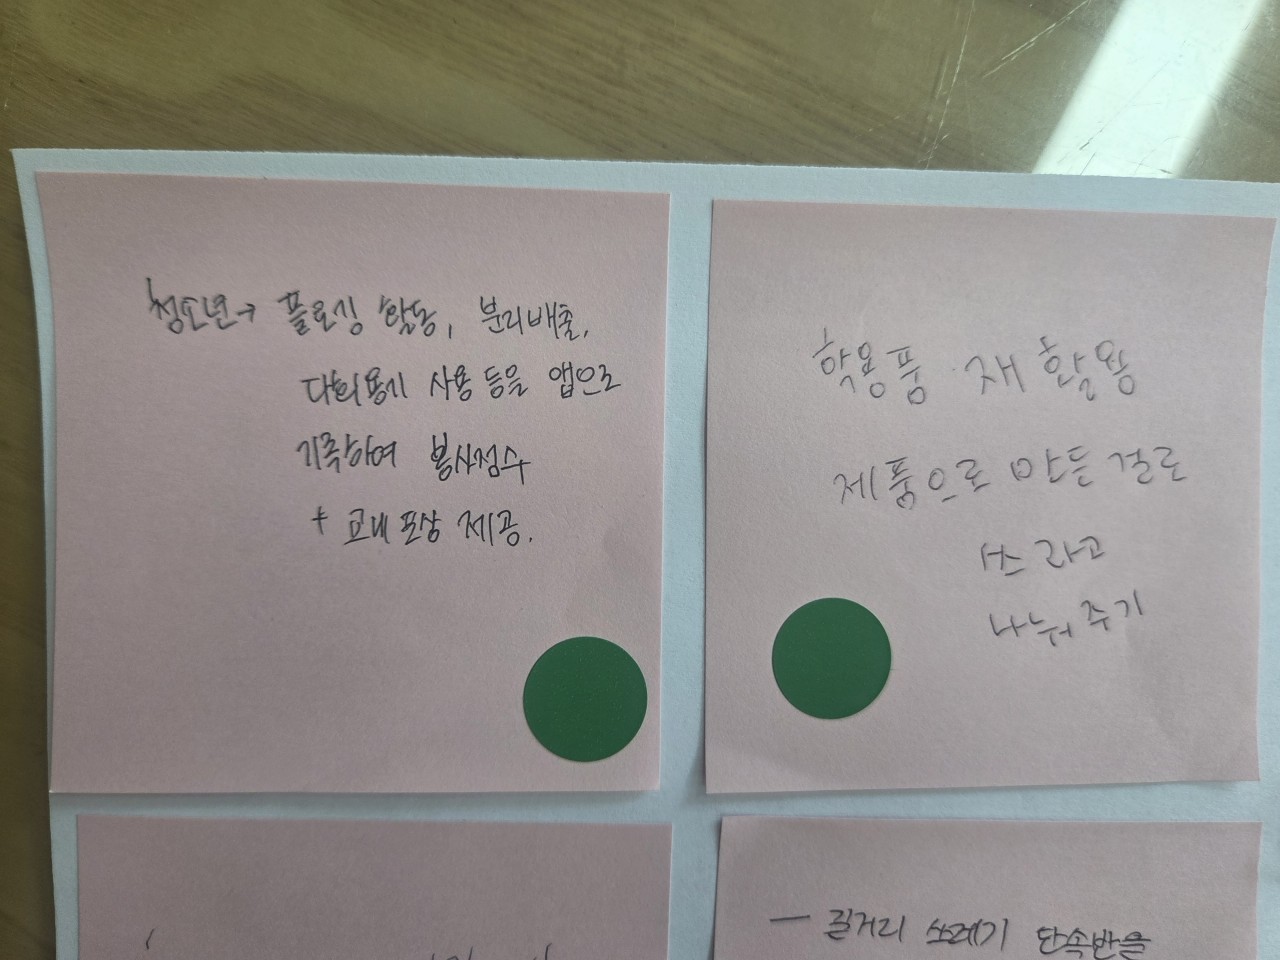 청소년→ 플로깅 활동, 분리배출,
다회용기 사용 등을 앱으로
기록하여 봉사점수
+ 교내 포상 제공.
학용품 재활용
제품으로 만든 걸로
쓰라고
나눠주기
— 길거리 쓰레기 단속반을